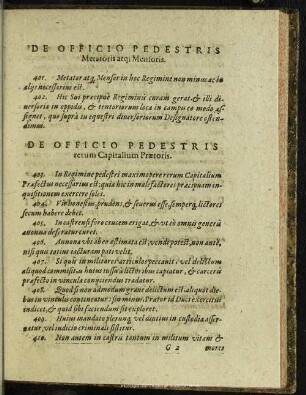 DE OFFICIO PEDESTRIS
Metatoris atq; Mensoris.
401. Metator atq; Mensor in hoc Regimine non minus ac in
alijs necessarius est.
402. Hic sui præcipuè Regiminis curam gerat, & illi di-
versoria in oppidis, & tentoriorum loca in campis eo modo as-
signet, quo suprà in equestri diversoriorum Designatore osten-
dimus.
DE OFFICIO PEDESTRIS
rerum Capitalium Prætoris.
403. In Regimine pedestri maximopere rerum Capitalium
Præfectus necessarius est; quia hic in malefactores præcipuam in-
quisitionem exercere solet.
404. Vir honestus, prudens, & severus esse, semperq; lictores
secum habere debet.
405. In castrensi foro crucem erigat, & ut ob omnis generis
annona deferatur curet.
406. Annona ubi ab eo æstimata est, vendi potest, non antè,
nisi quis tutius tacitus emi velit.
407. Si quis in militares articulos peccarit, vel delictum
aliquod commisit, is huius jussu à lictoribus capiatur, & carceri
præfecto in vincula conijciendus tradatur.
408. Quod si non admodum grave delictum est aliquot die-
bus in vinculis contineatur; sin minus Prætor id Duci exercitus
indicet, & quid sibi faciendum sit expectet.
409. Huius mandato plerunq; vel diutius in custodia asser-
vatur, vel iudicio criminali sistitur.
410. Non autem in castris tantum in militum vitam &
G 2 mores